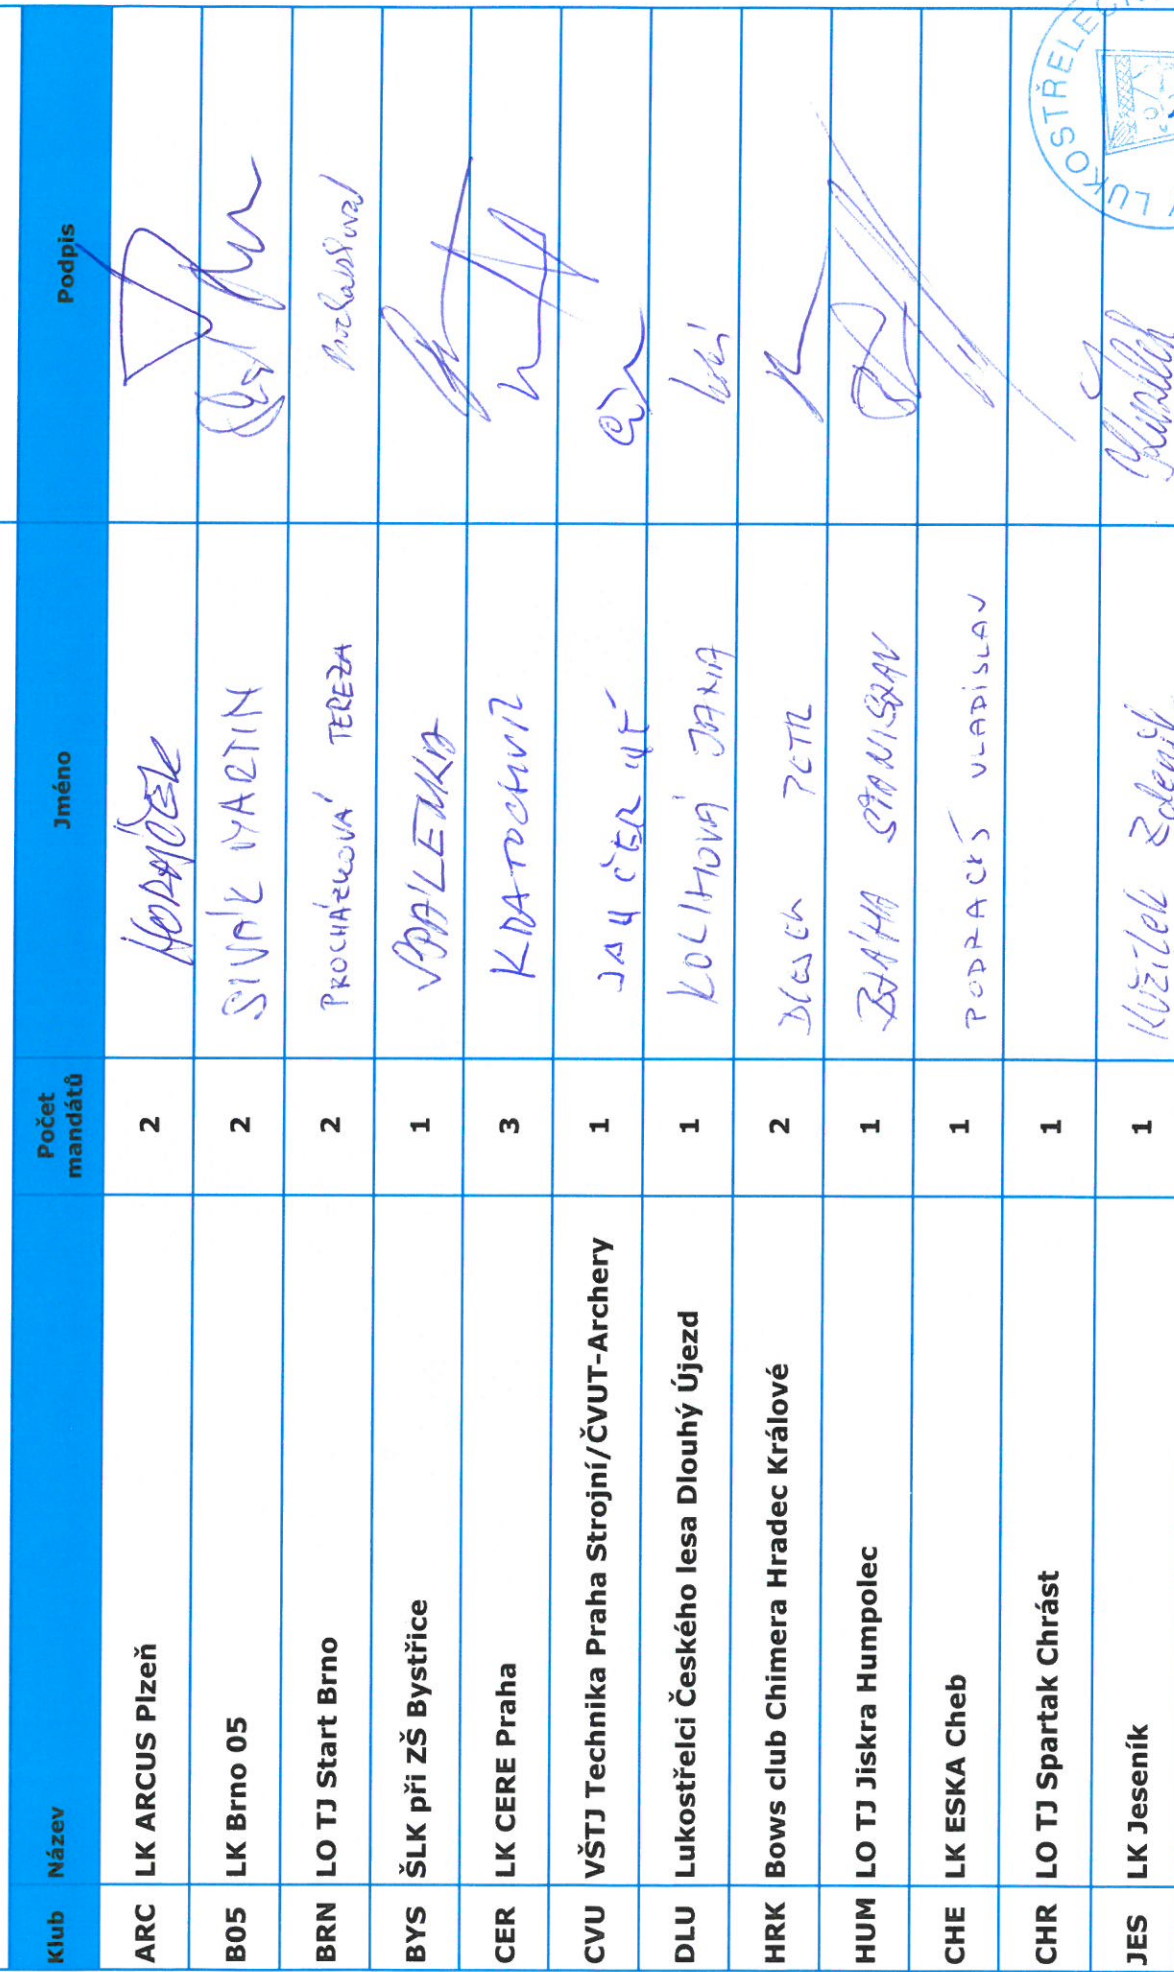 Klub Název Počet mandátů Jméno Podpis
ARC LK ARCUS Plzeň 2
B05 LK Brno 05 2 SIVÁK MARTIN
BRN LO TJ Start Brno 2 PROCHÁZKOVÁ TEREZA Procházková
BYS ŠLK při ZŠ Bystřice 1
CER LK CERE Praha 3 KRATOCHVIL
CVU VŠTJ Technika Praha Strojní/ČVUT-Archery 1
DLU Lukostřelci Českého lesa Dlouhý Újezd 1 JANA
HRK Bows club Chimera Hradec Králové 2 PETR
HUM LO TJ Jiskra Humpolec 1 STANISLAV
CHE LK ESKA Cheb 1 VLADISLAV
CHR LO TJ Spartak Chrást 1
JES LK Jeseník 1 Kužílek Zdeněk